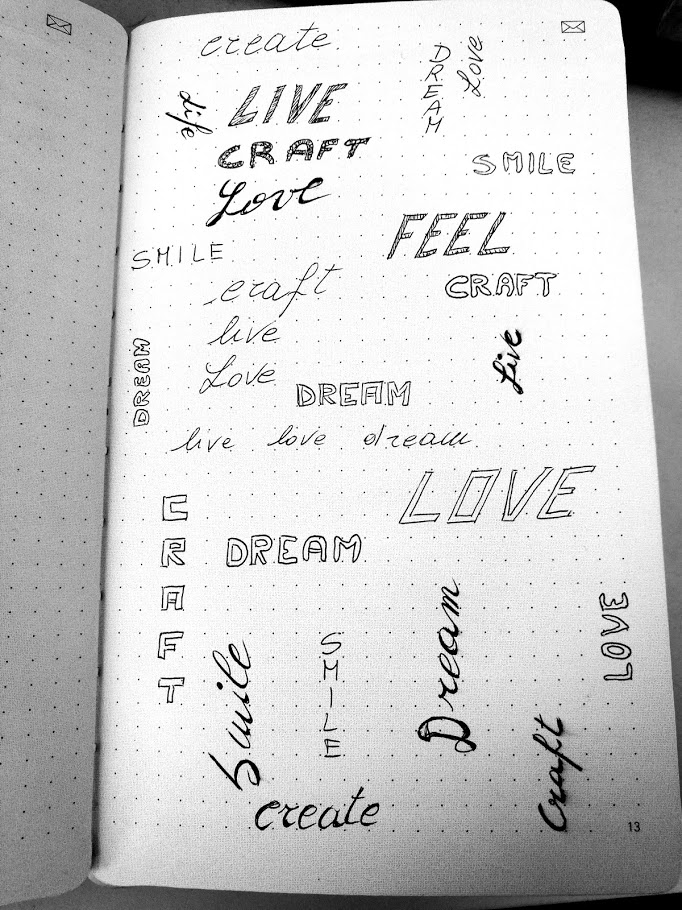 create
DREAM
Love
Life
LIVE
CRAFT
SMILE
Love
FEEL
SMILE
craft
CRAFT
live
Live
Love
DREAM
DREAM
live love dream
LOVE
CRAFT
DREAM
Dream
LOVE
Smile
SMILE
craft
create
13